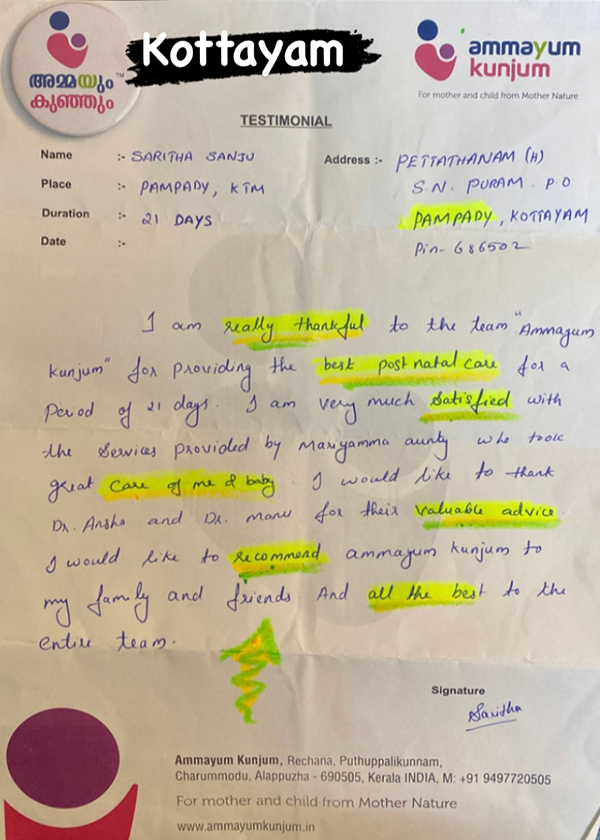 Kottayam
അമ്മയും™
കുഞ്ഞും
ammayum
kunjum
For mother and child from Mother Nature
TESTIMONIAL
Name :- SARITHA SANJU
Place :- PAMPADY, KTM
Duration :- 21 DAYS
Date :-
Address :- PETTATHANAM (H)
S.N. PURAM. P.O
PAMPADY, KOTTAYAM
Pin- 686502
I am really thankful to the team "Ammayum
Kunjum" for providing the best postnatal care for a
Period of 21 days. I am very much satisfied with
the services provided by Mariyamma aunty who took
great care of me & baby. I would like to thank
Dr. Ansha and Dr. Manu for their valuable advice.
I would like to recommend ammayum kunjum to
my family and friends. And all the best to the
entire team.
Signature
Saritha
Ammayum Kunjum, Rechana, Puthuppalikunnam,
Charummodu, Alappuzha - 690505, Kerala INDIA, M: +91 9497720505
For mother and child from Mother Nature
www.ammayumkunjum.in